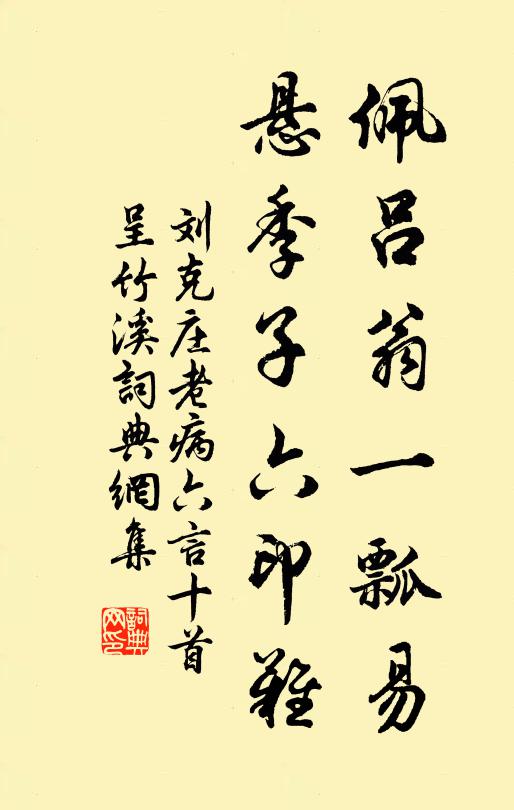 佩吕翁一瓢易
悬季子六印難
刘克庄老病六言十首
呈竹溪詞典網集
詞典
网印